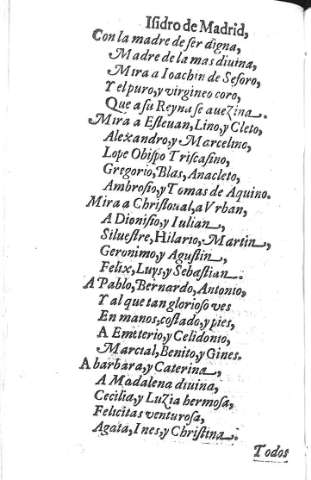 Isidro de Madrid,
Con la madre de ser digna,
Madre de la mas diuina,
Mira a Ioachin de Sesoro,
Y el puro, y virgineo coro,
Que a su Reyna se auezina.
Mira a Esteuan, Lino, y Cleto,
Alexandro, y Marcelino,
Lope Obispo Triscasino,
Gregorio, Blas, Anacleto,
Ambrosio, y Tomas de Aquino.
Mira a Christoual, a Vrban,
A Dionisio, y Iulian,
Siluestre, Hilario, Martin,
Geronimo, y Agustin,
Felix, Luys, y Sebastian.
A Pablo, Bernardo, Antonio,
Y al que tan glorioso ves
En manos, costado, y pies,
A Emiterio, y Celidonio,
Marcial, Benito, y Gines.
A barbara, y Caterina,
A Madalena diuina,
Cecilia, y Luzia hermosa,
Felicitas venturosa,
Agata, Ines, y Christina.
Todos